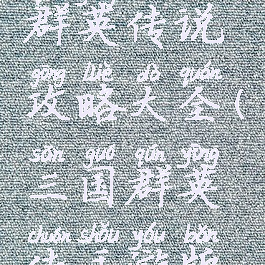 群英传说
gōng lüè dà quán
攻略大全(
sān guó qún yīng
三国群英
chuán shǒu yóu bǎn